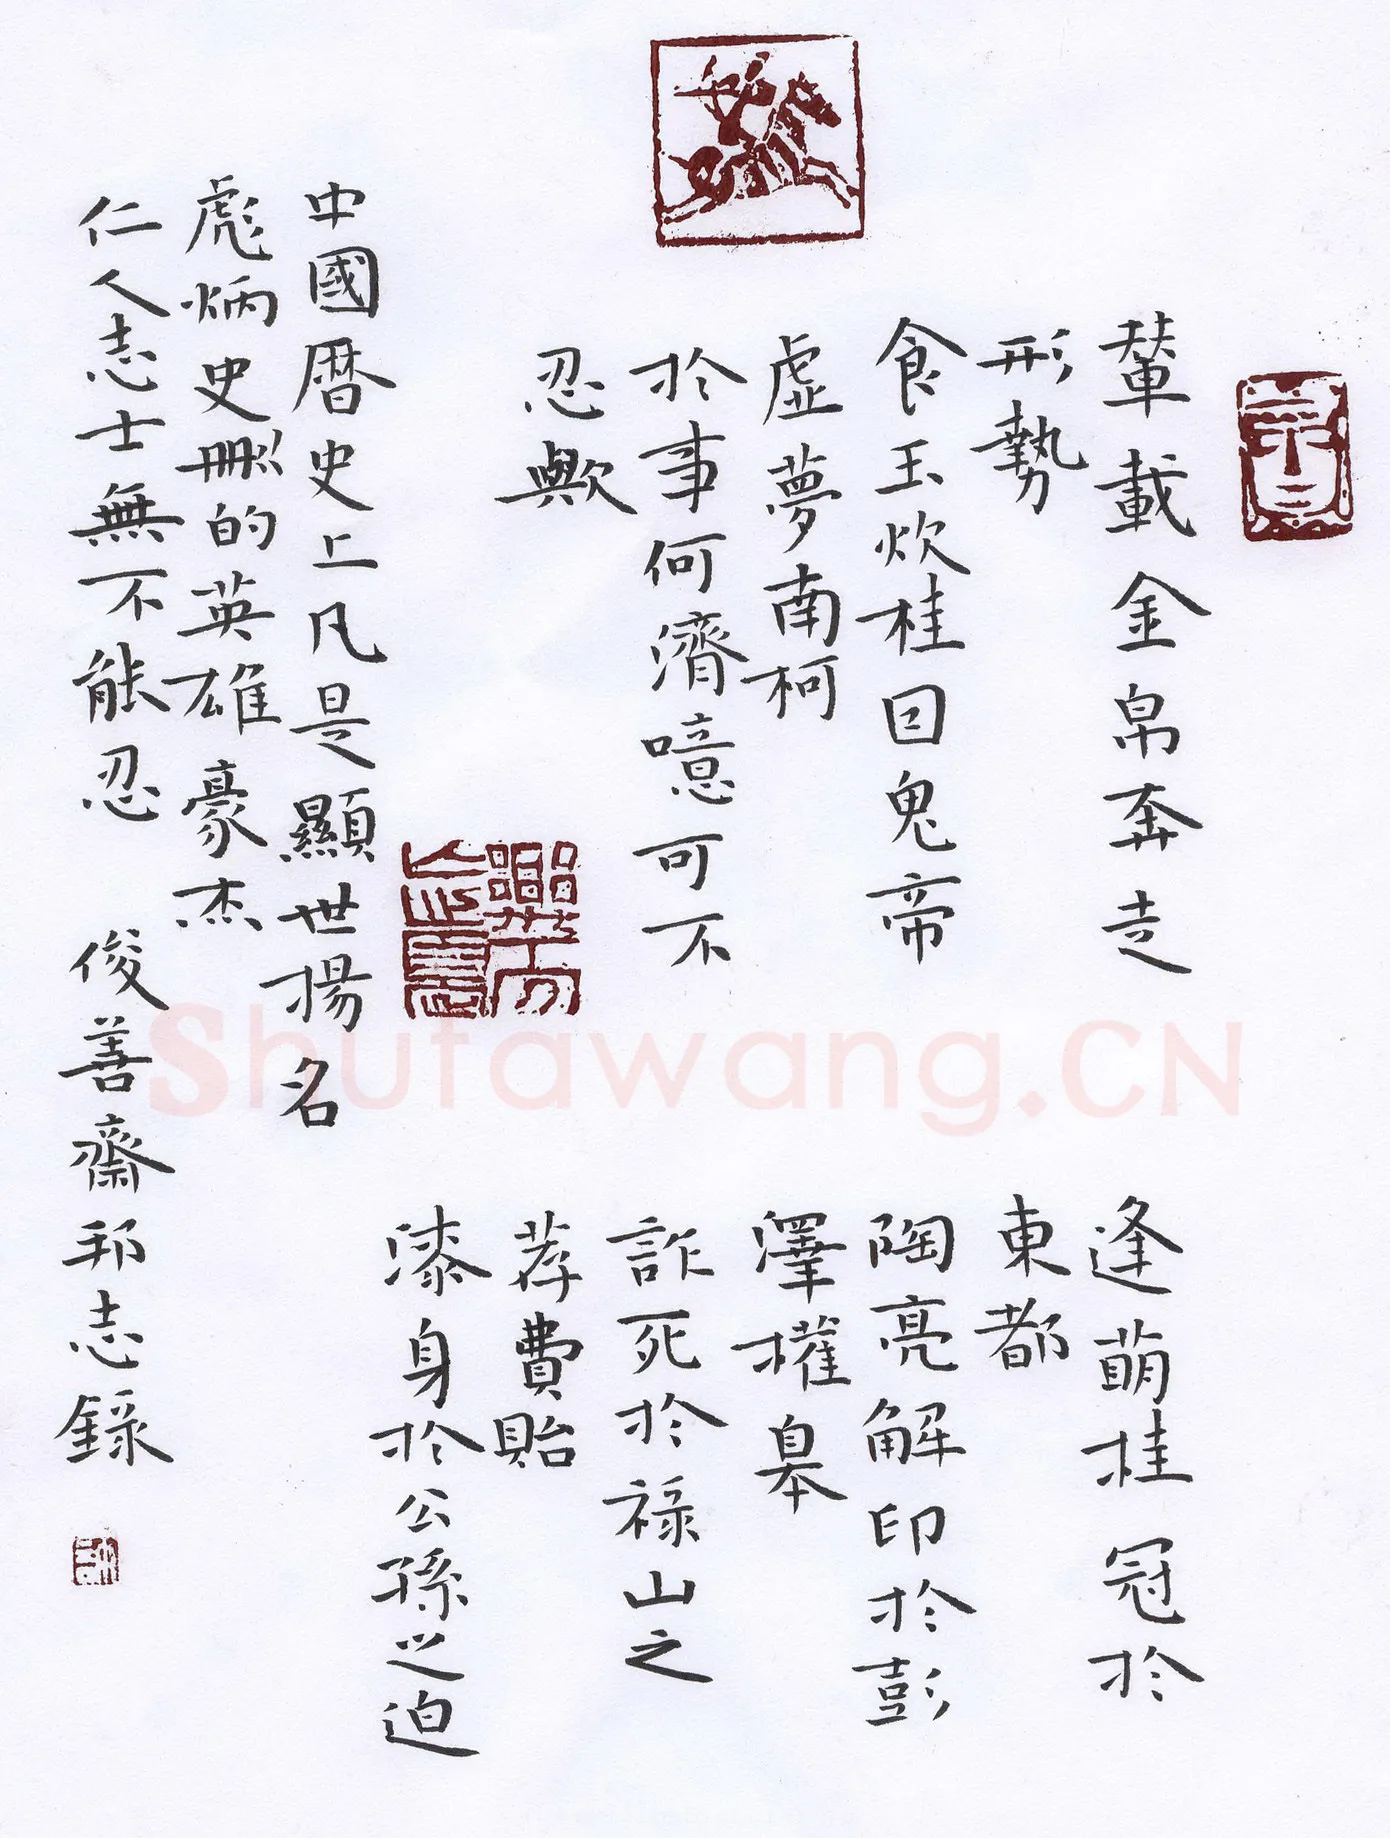 輦載金帛奔走
形勢
食玉炊桂囙鬼帝
虛夢南柯
於事何濟噫可不
忍歟
逢萌桂冠於
東都
陶亮解印於彭
澤權皋
詐死於禄山之
荐費貽
漆身於公孫之迫
中國暦史上凡是顯世揚名
彪炳史删的英雄豪杰
仁人志士無不能忍 俊善齋邦志錄
Shufawang.CN